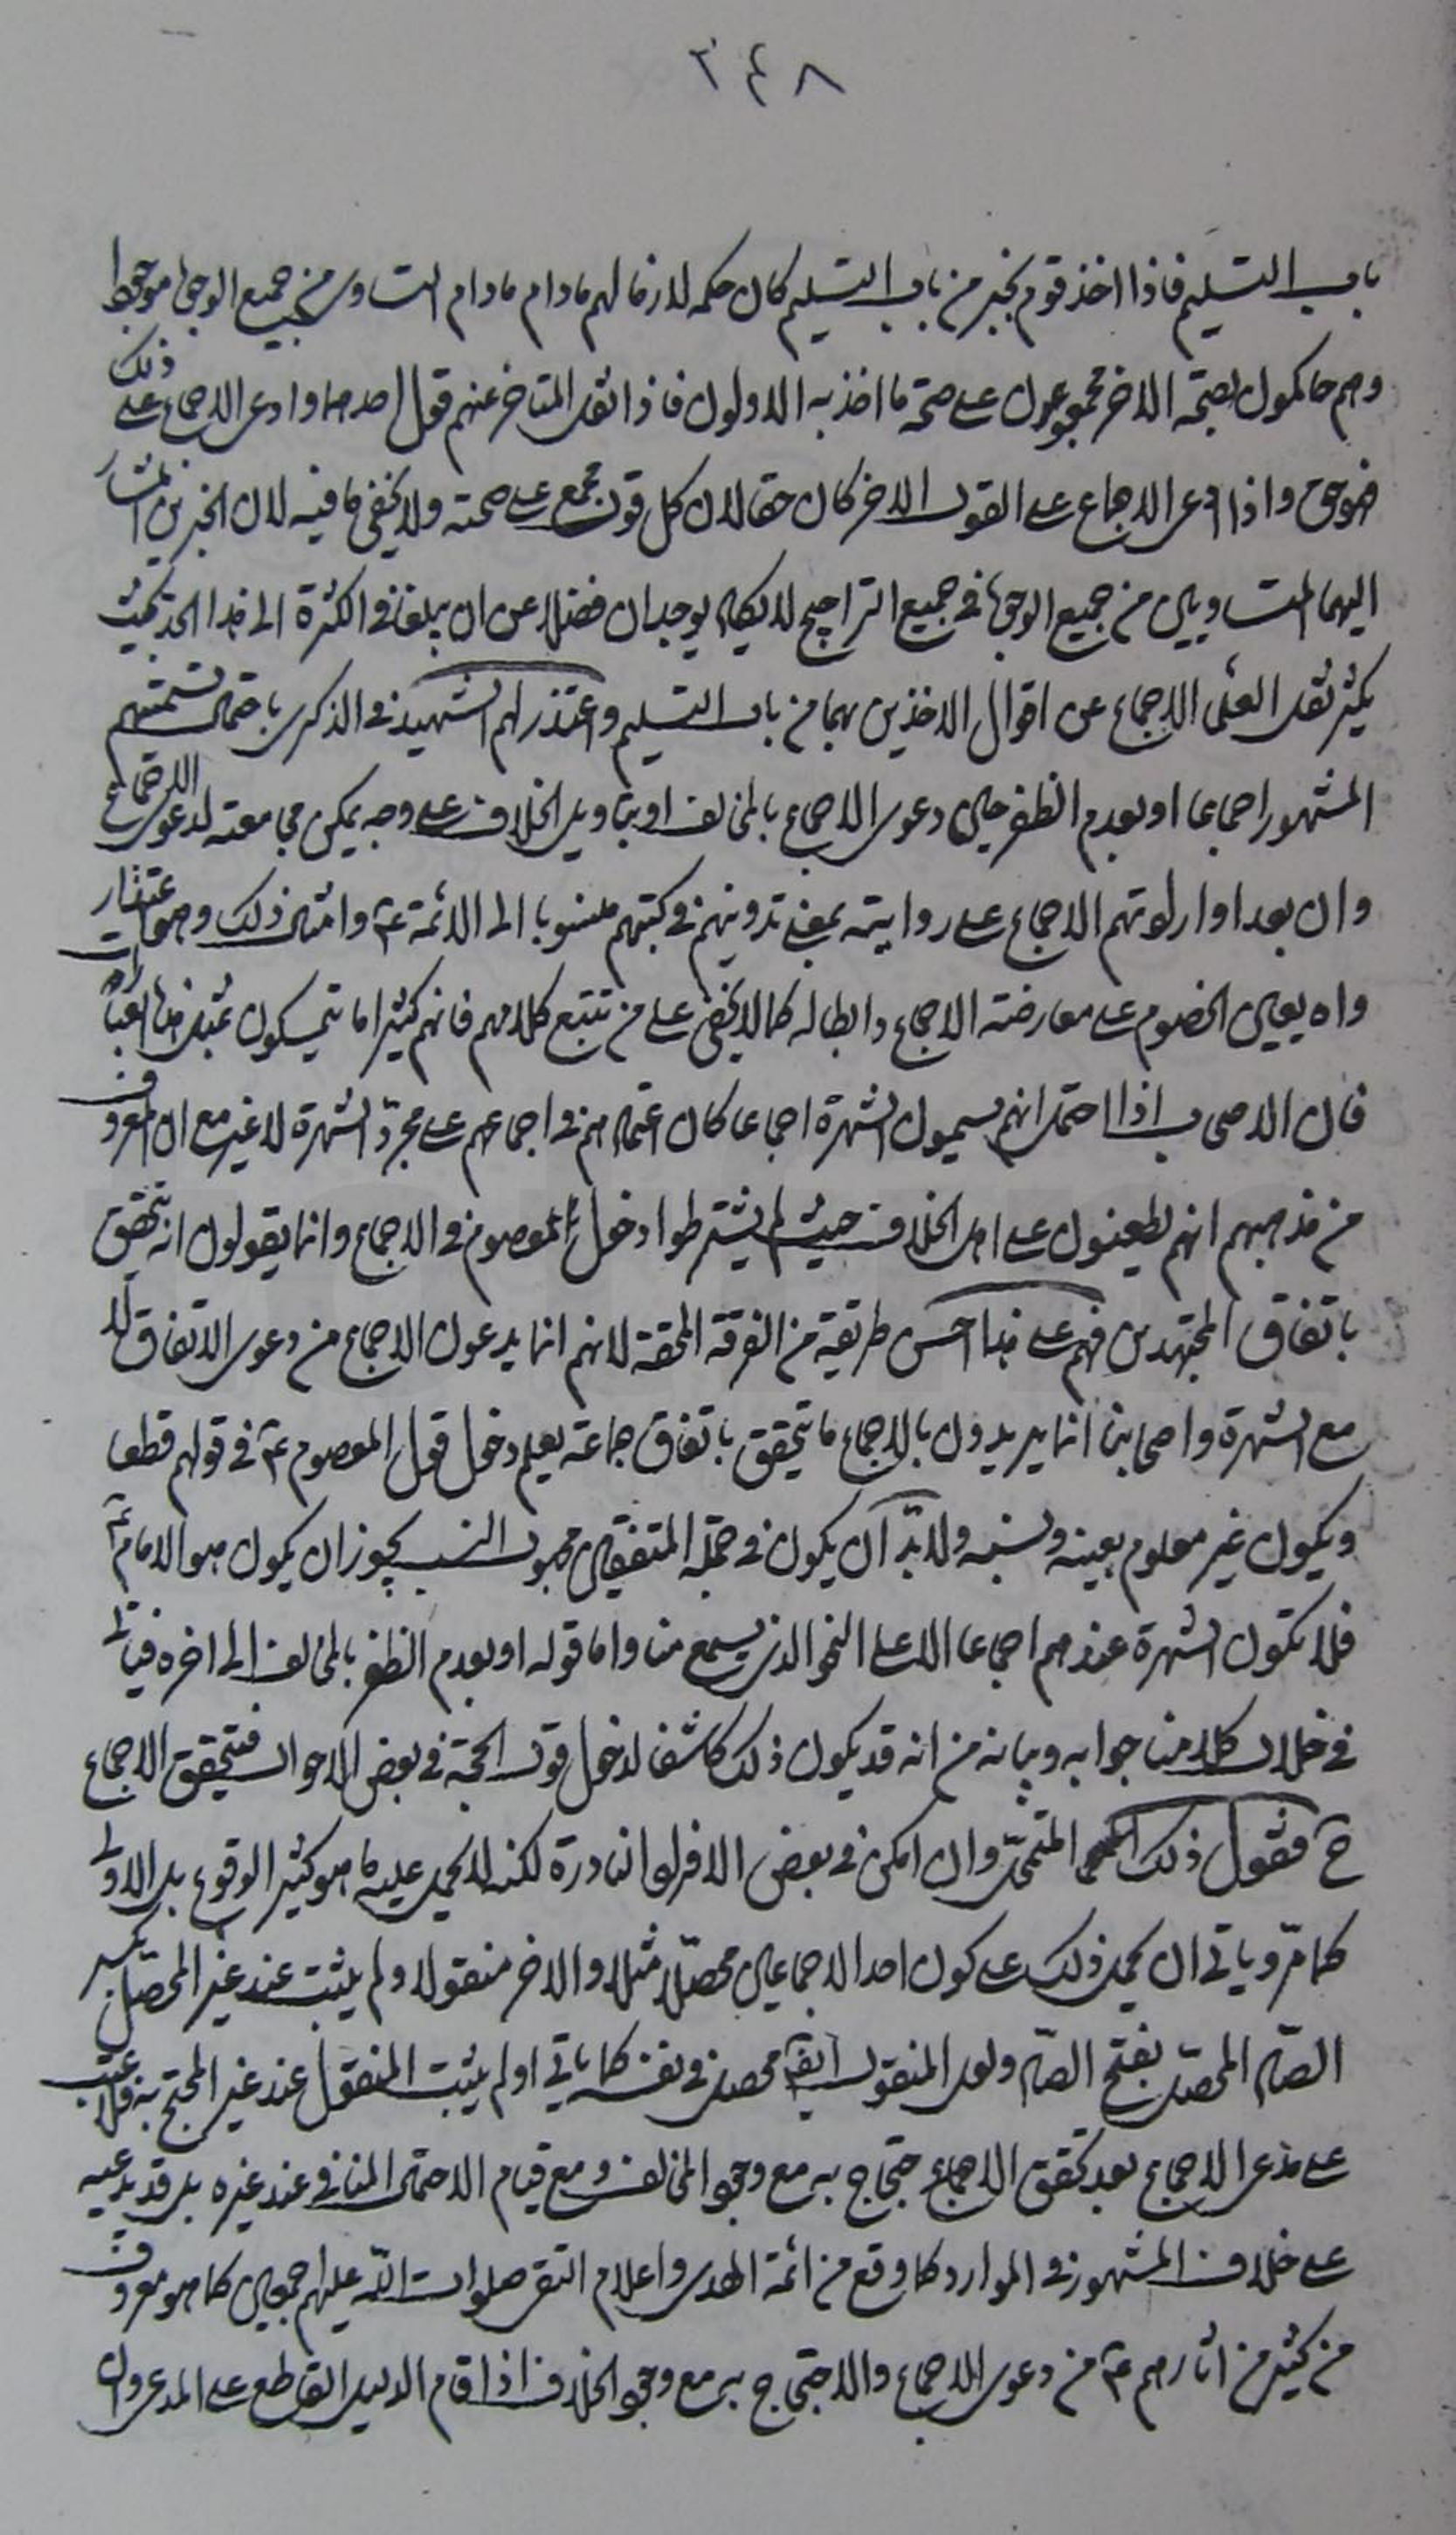 ٣٤٨
باب التسليم فاذا اخذ قوم بخبر من باب التسليم كان حكمه لازما لهم مادام مادام التساوى من جميع الوجوه موجودا
وهم حاكمون بصحة الاخر مجموعون على صحة ما اخذ به الاولون فاذا نقل المتاخر عنهم قول احدهما وادعى الاجماع على ذلك
فهو حق واذا ادعى الاجماع على القول الاخر كان حقا لان كل قول مجمع على صحته ولا يخفى ما فيه لان الخبرين المشار
اليهما المتساويين من جميع الوجوه في جميع التراجيح لا يكاد يوجدان فضلا عن ان يبلغا في الكثرة الى هذا الحد بحيث
يكثر نقل العلماء الاجماع عن اقوال الاخذين بهما من باب التسليم واعتذر لهم الشهيد في الذكرى باحتمال تسميتهم
المشهور اجماعا او بعدم الظفر حين دعوى الاجماع بالمخالف او بتاويل الخلاف على وجه يمكن مجامعته لدعوى الاجماع
وان بعد او ارادتهم الاجماع على روايته بمعنى تدوينهم في كتبهم منسوبا الى الائمة ع وامثال ذلك وهو اعتذارات
واه يعين الخصوم على معارضة الاجماع وابطاله كما لا يخفى على من تتبع كلامهم فانهم كثيرا ما يتمسكون بمثل هذه العبارات
فان الاصحاب اذا احتمل انهم يسمون الشهرة اجماعا كان اعتمادهم في اجماعهم على مجرد الشهرة لا غير مع ان المعروف
من مذهبهم انهم يطعنون على اهل الخلاف حيث لم يشترطوا دخول المعصوم في الاجماع وانما يقولون انه يتحقق
باتفاق المجتهدين فهم على هذا احسن طريقة من الفرقة المحقة لانهم انما يدعون الاجماع من دعوى الاتفاق لا
مع الشهرة واصحابنا انما يريدون بالاجماع ما يتحقق باتفاق جماعة يعلم دخول قول المعصوم ع في قولهم قطعا
ويكون غير معلوم بعينه ونسبه ولابد ان يكون في جملة المتفقين مجهول النسب يجوز ان يكون هو الامام ع
فلا تكون الشهرة عندهم اجماعا الا على النحو الذي يسمع منا واما قوله او بعدم الظفر بالمخالف الى اخره فياتى
في خلال كلامنا جوابه وبيانه من انه قد يكون ذلك كاشفا لدخول قول الحجة في بعض الاحوال فيتحقق الاجماع
ح فنقول ذلك المتمحل وان امكن في بعض الافراد النادرة لكنه لا يحمل عليه ما هو كثير الوقوع بل الاولى
كما مر وياتي ان يحمل ذلك على كون احد الاجماعين محصلا مثلا والاخر منقولا ولم يثبت عند غير المحصل بكسر
الصاد المحصل بفتح الصاد ولعل المنقول ايضا محصل في نفسه كما ياتي او لم يثبت المنقول عند غير المحتج به فلا عتب
على مدعى الاجماع بعد تحقق الاجماع حتجاج به مع وجود المخالف ومع قيام الاحتمال المنافي عند غيره بل قد يدعيه
على خلاف المشهور في الموارد كما وقع من ائمة الهدى واعلام التقى صلوات الله عليهم اجمعين كما هو معروف
من كثير من اثارهم ع من دعوى الاجماع والاحتجاج به مع وجود الخلاف اذا قام الدليل القاطع على المدعى وان